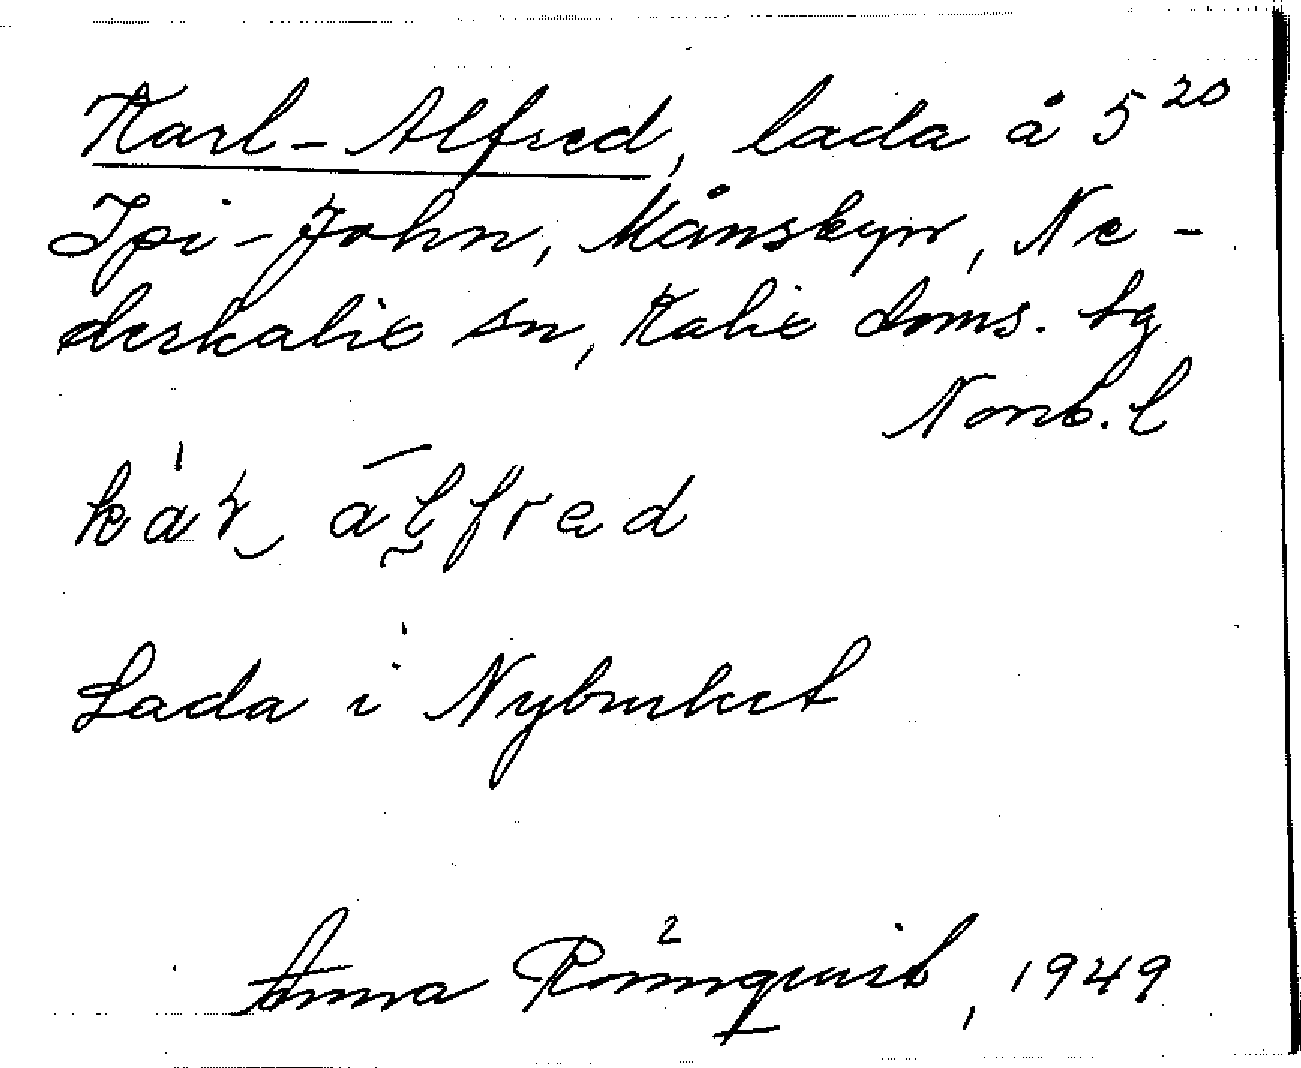 Karl-Alfred, lada å 5²⁰
Ipi-John, Månsbyn, Ne-
derkalix sn, Kalix doms. tg
Norrb. l
Lada i Nybruket
Anna Rönnqvist, 1949